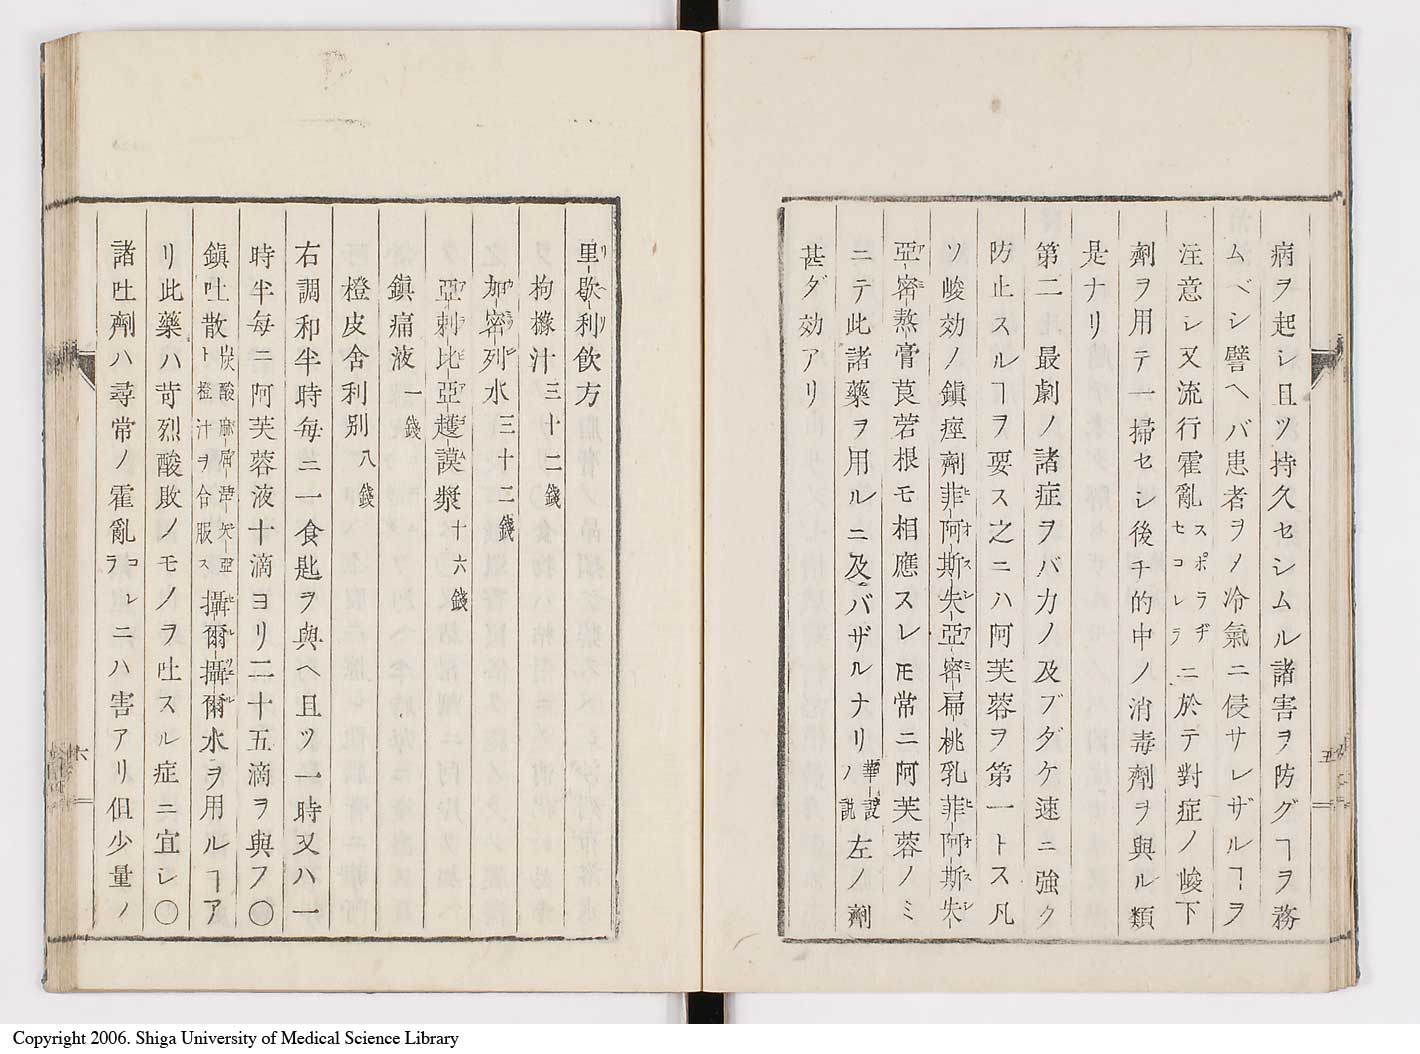 病ヲ起シ且ツ持久セシムル諸害ヲ防グヿヲ務
ムベシ譬ヘバ患者ヲノ冷氣ニ侵サレザルヿヲ
注意シ又流行霍亂スポラヂセコレラニ於テ對症ノ峻下
劑ヲ用テ一掃セシ後チ的中ノ消毒劑ヲ與ル類
是ナリ
第二最劇ノ諸症ヲバ力ノ及ブダケ速ニ強ク
防止スルヿヲ要ス之ニハ阿芙蓉ヲ第一トス凡
ソ峻効ノ鎮痙劑菲阿斯失亞密扁桃乳菲阿斯失
亞密熬膏莨菪根モ相應スレ𪜈常ニ阿芙蓉ノミ
ニテ此諸藥ヲ用ルニ及バザルナリ華説ノ説左ノ劑
甚ダ効アリ
五
里歇利飲方
枸櫞汁三十二錢
加密列水三十二錢
亞剌比亞護謨漿十六錢
鎮痛液一錢
橙皮舍利別八錢
右調和半時毎ニ一食匙ヲ與ヘ且ツ一時又ハ一
時半毎ニ阿芙蓉液十滴ヨリ二十五滴ヲ與フ〇
鎮吐散炭酸麻屈涅矢亞ト橙汁ヲ合服ス攝爾攝爾水ヲ用ルヿア
リ此藥ハ苛烈酸敗ノモノヲ吐スル症ニ宜シ〇
諸吐劑ハ尋常ノ霍亂コレラニハ害アリ但少量ノ
六
Copyright 2006. Shiga University of Medical Science Library